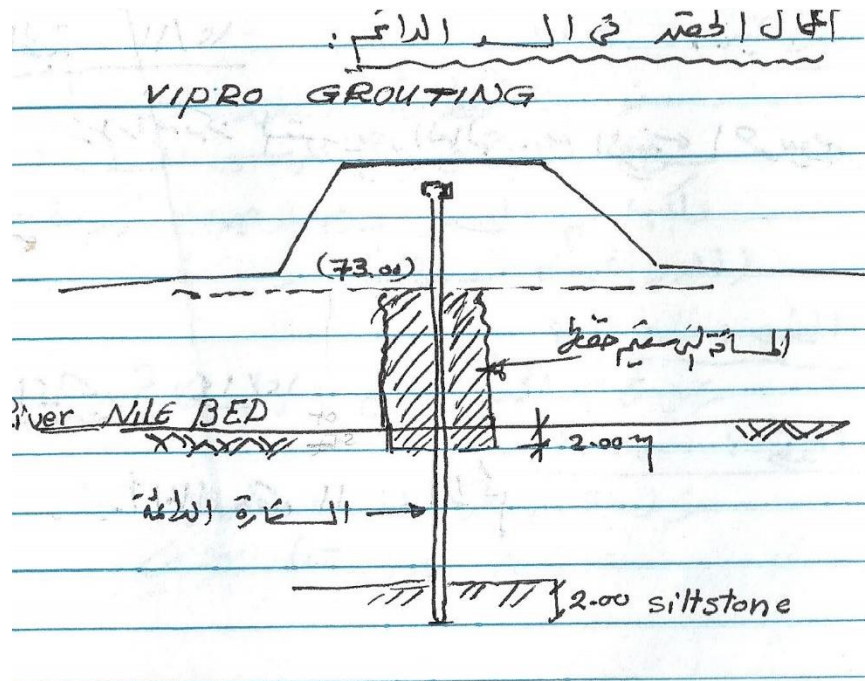 أعمال الحقن في السد الدائم:
VIPRO GROUTING
(73.00)
المسافة التي سيتم حقنها
River NILE BED
2.00 m
الستارة الدائمة
2.00 siltstone